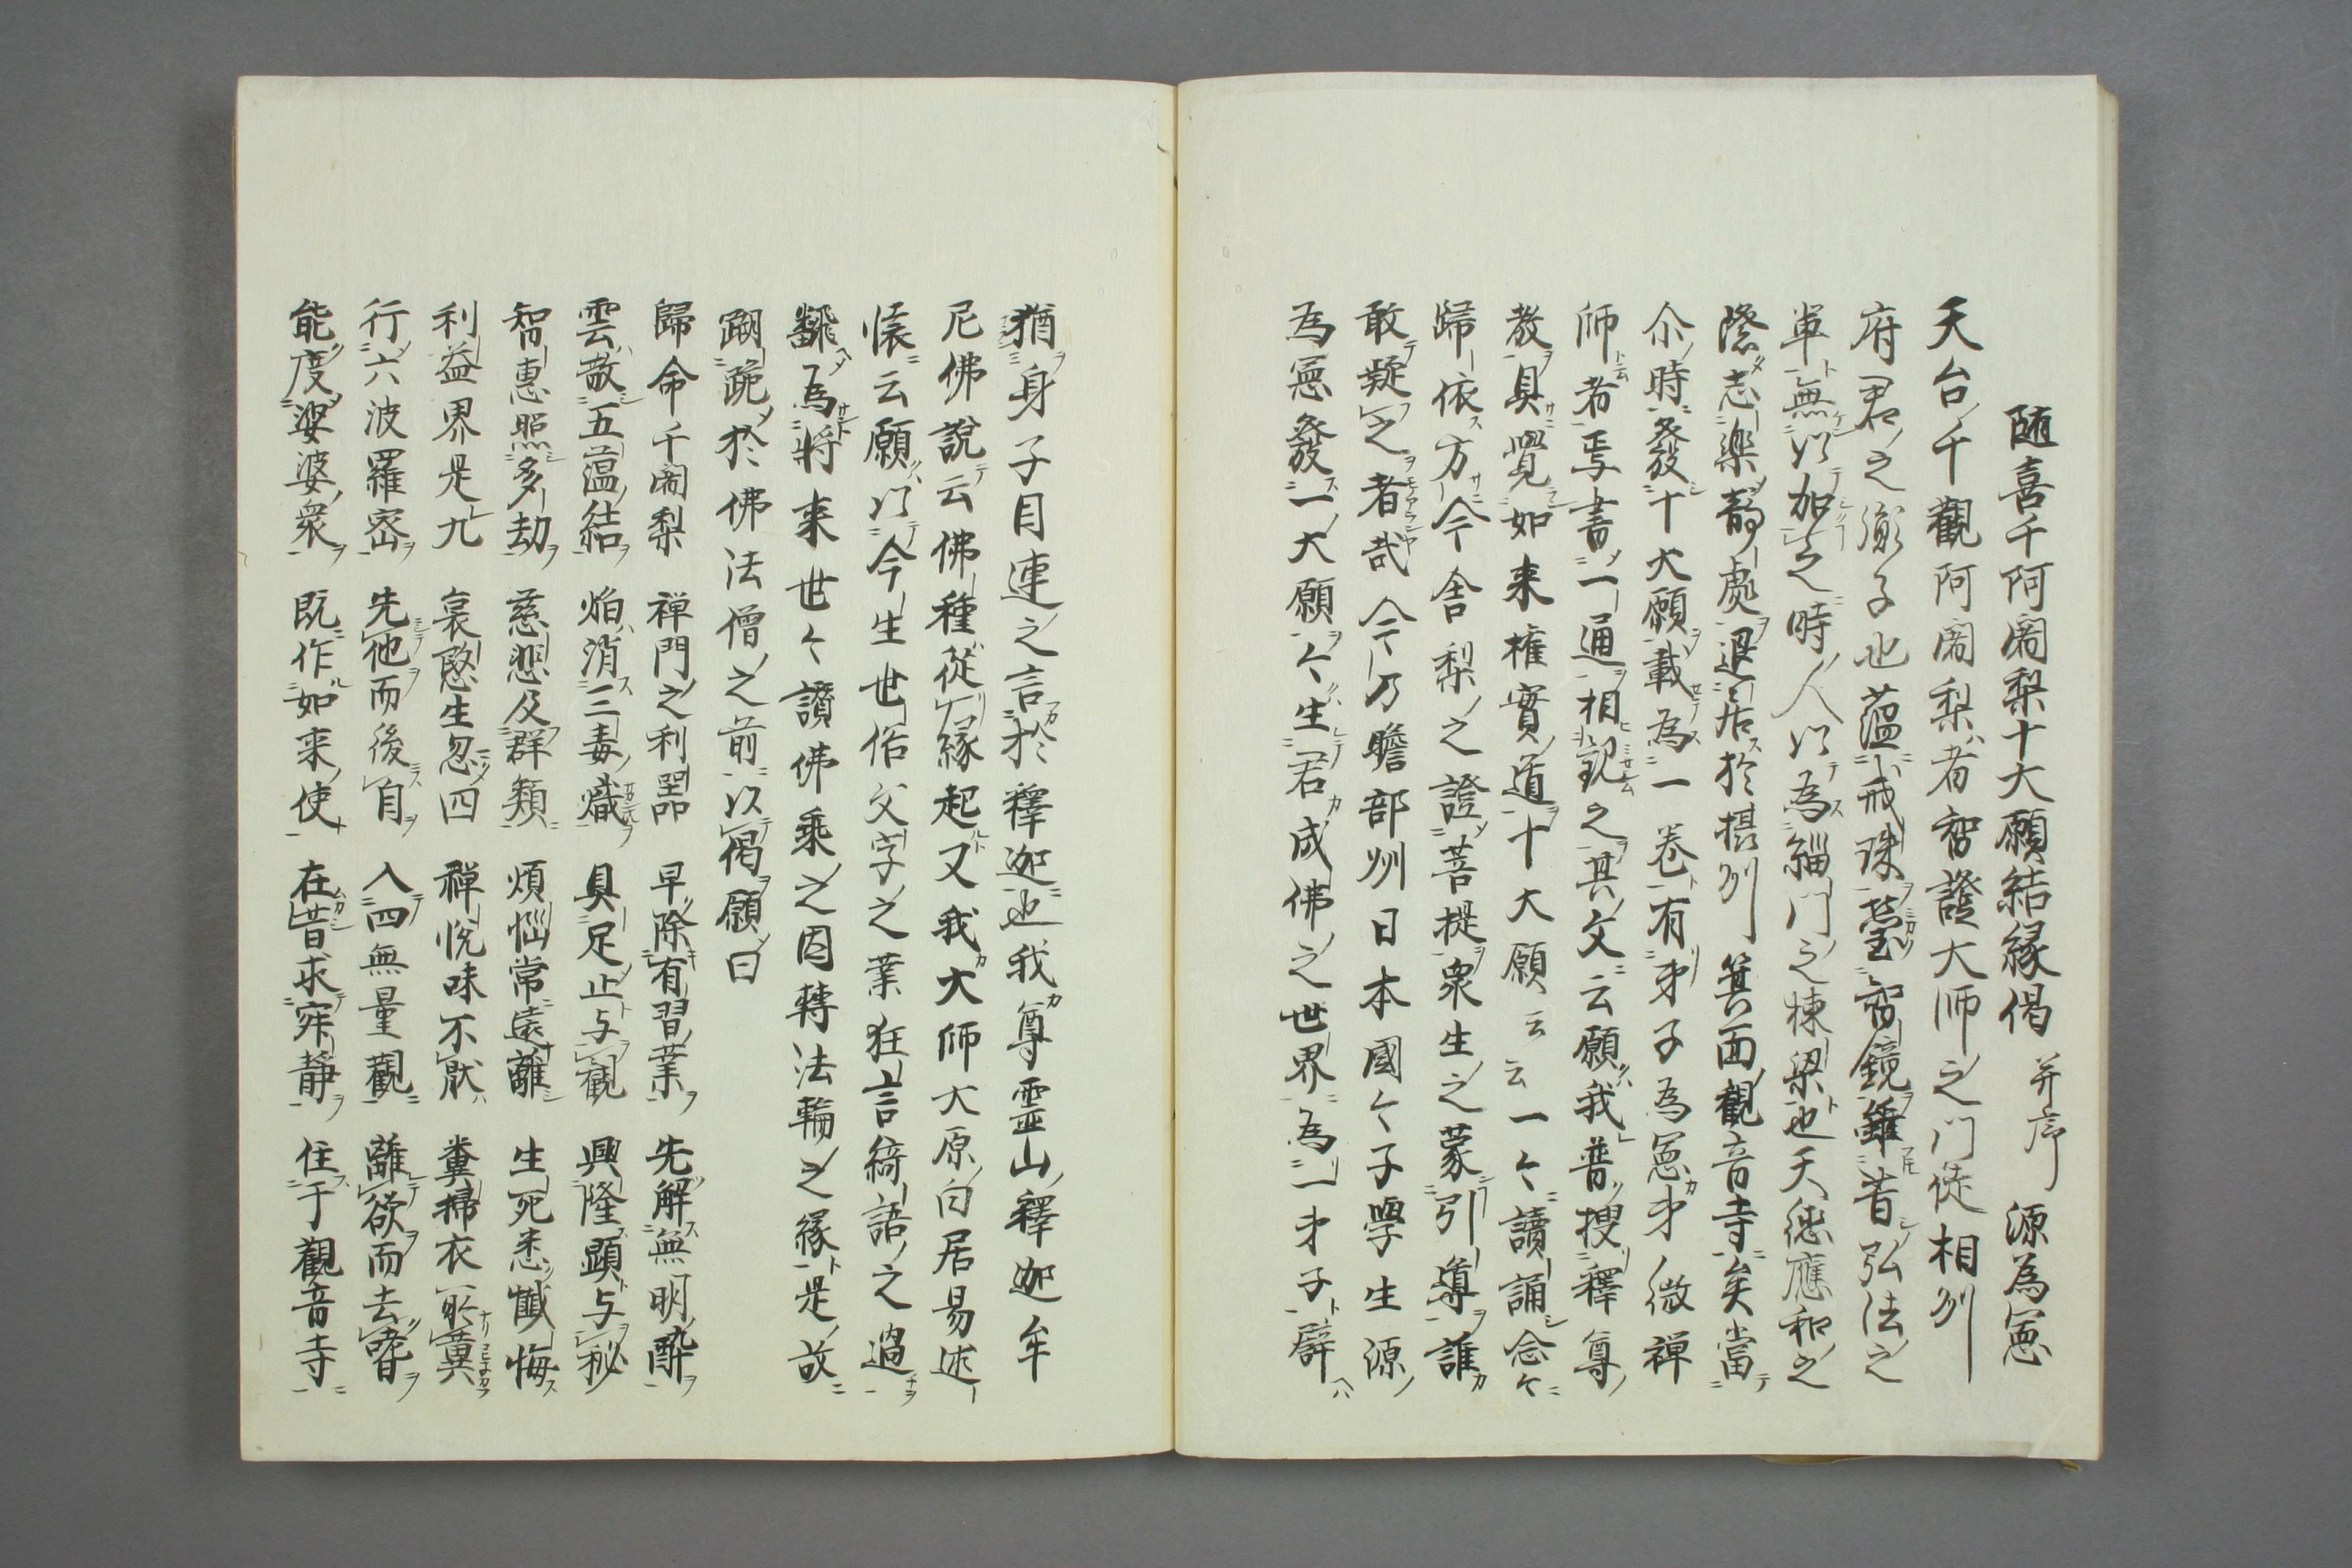 随喜千阿闍梨十大願結縁偈 并序 源為憲
天台千觀阿闍梨者智證大師之門徒相列
府君之胤子也蘊戒珠瑩智鏡雖昔弘法之
軍無以加之時人以為緇門之棟梁也天德應和之
際志樂静處退居於摂列箕面觀音寺矣當
尒時發十大願載為一卷有弟子為憲弟微禅
師者寫書一通相覬之其文云願我普搜釋尊
教具覺如来權實道十大願云云一々讀誦念々
歸依方今舎梨之證菩提衆生之蒙引導誰
敢疑之者哉今乃瞻部洲日本國々子學生源
為憲發一大願々生君成佛之世界為一弟子譬
猶身子目連之言於釋迦也我尊靈山釋迦牟
尼佛說云佛種從縁起又我大師大原白居易述
懐云願以今生世俗文字之業狂言綺語之過
飜為將来世々讃佛乘之因轉法輪之縁是故
𨂻跪於佛法僧之前以偈願曰
歸命千闍梨 禅門之利器 早除有習業 先解無明酔
雲散五蘊結 焔消三毒熾 具足止与觀 興隆顕与秘
智惠照多劫 慈悲及群類 煩惱常遠離 生死悉懺悔
利益界是九 哀愍生忽四 禅悦味不猒 糞掃衣
行六波羅蜜 先他而後自 入四無量觀 離欲而去
能度娑婆衆 既作如来使 在昔求寂静 住于觀音寺